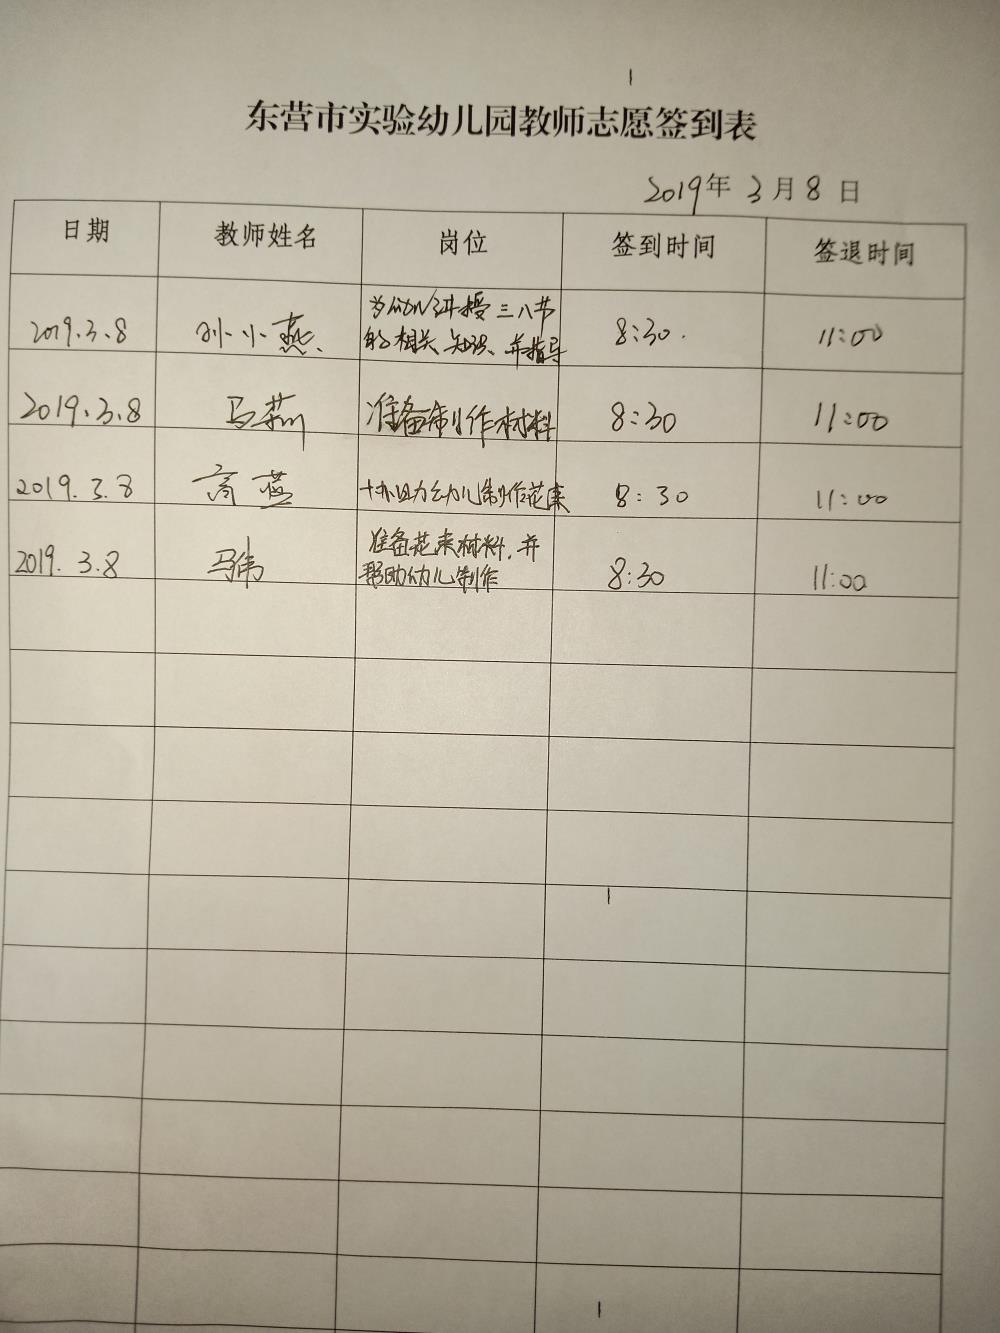 东营市实验幼儿园教师志愿签到表
2019年 3月8日
日期 教师姓名 岗位 签到时间 签退时间
为幼儿讲授三八节
2019.3.8 孙小燕 的相关知识、并指导 8:30 11:00
2019.3.8 马莉 准备制作材料 8:30 11:00
2019.3.8 高燕 协助幼儿制作花束 8:30 11:00
准备花束材料,并
2019.3.8 马伟 帮助幼儿制作 8:30 11:00